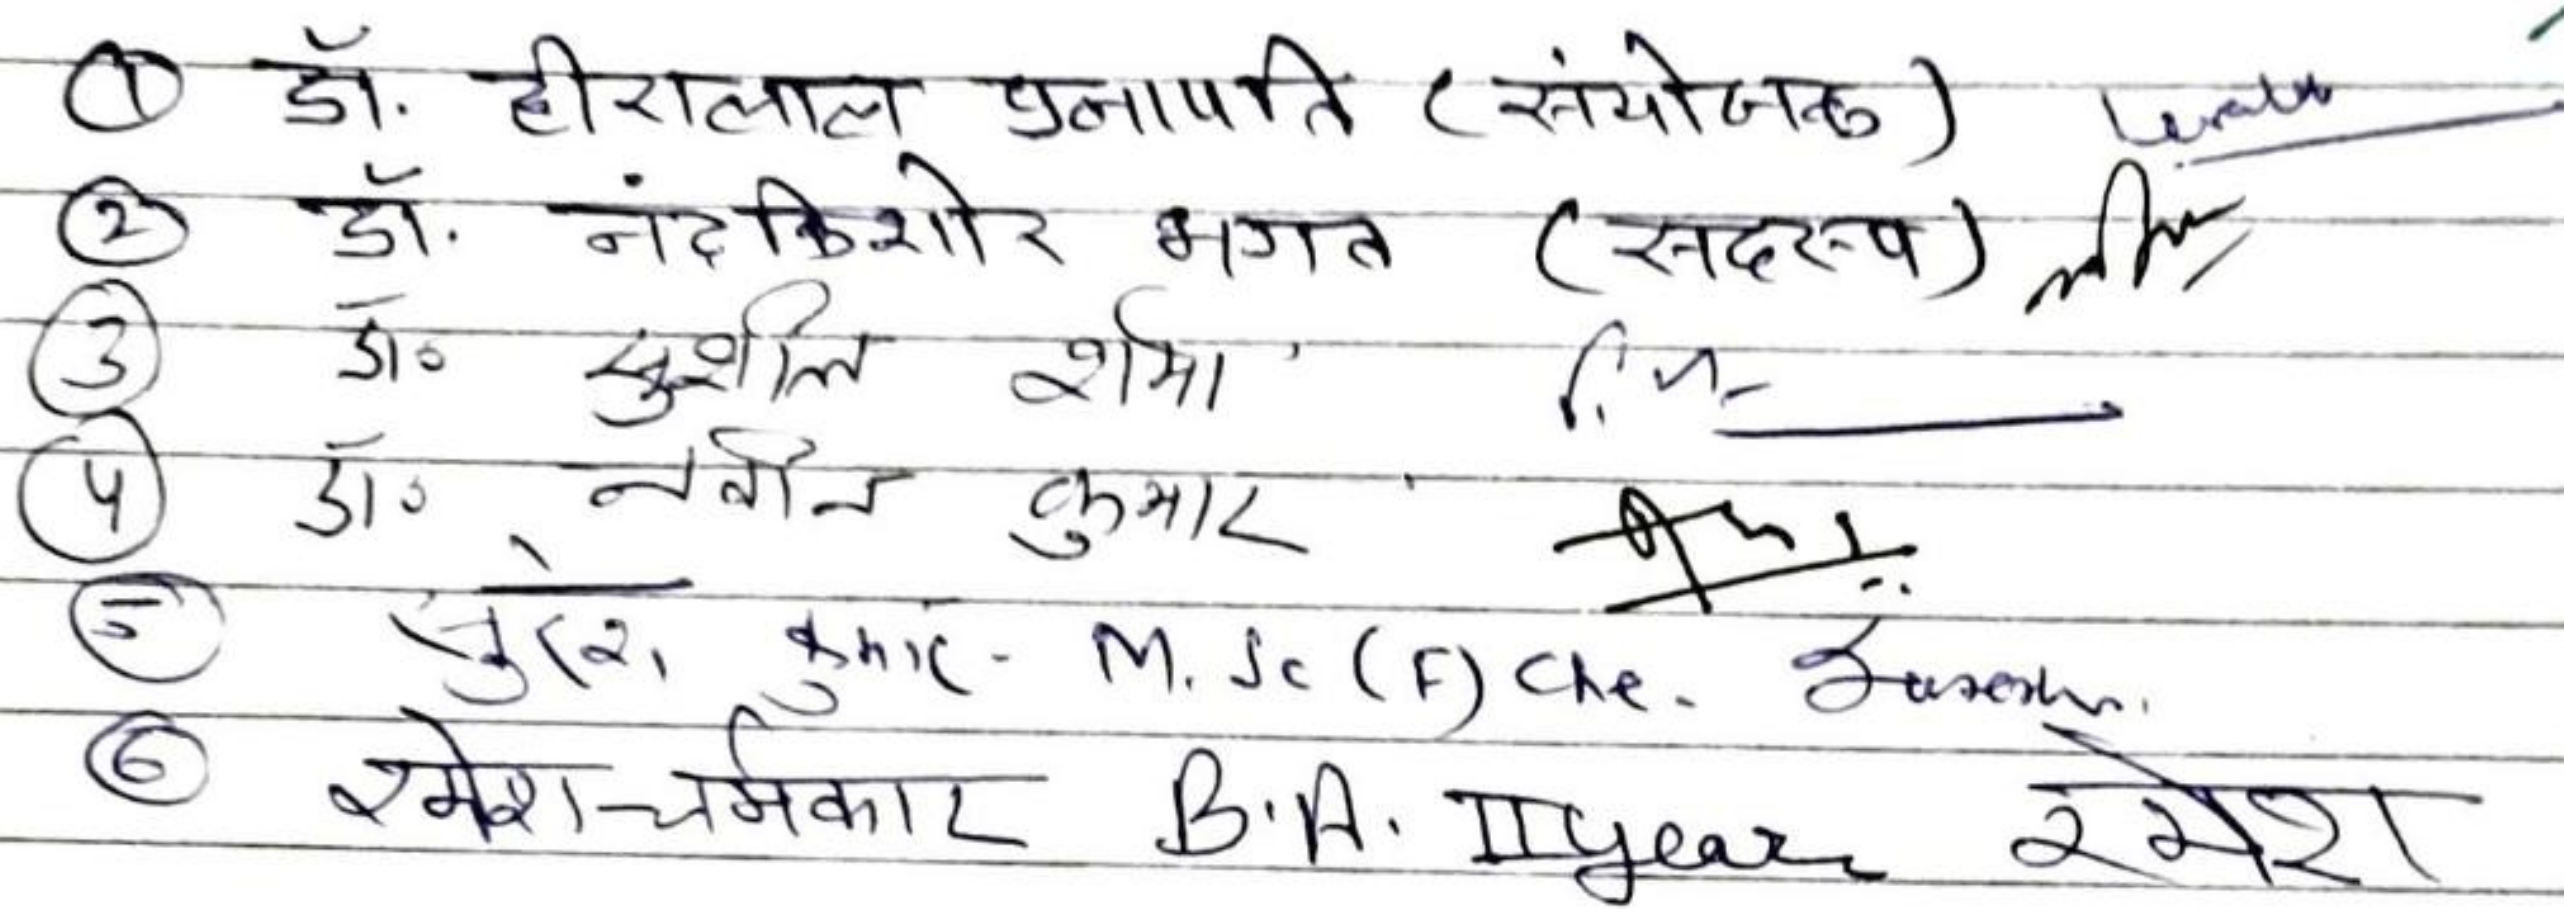 ① डॉ. हीरालाल प्रजापति (संयोजक)
② डॉ. नंदकिशोर भगत (सदस्य)
③ डॉ॰ सुशील शर्मा
④ डॉ॰ नवीन कुमार
⑤ सुरेश कुमार - M.Sc (F) Che. Suresh.
⑥ रमेश चर्मकार B.A. II year रमेश